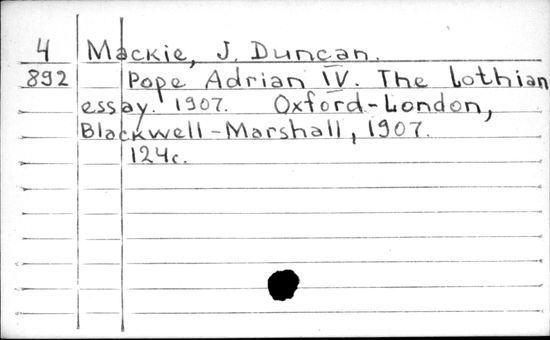 4 Mackie, J. Duncan.
892 Pope Adrian IV. The Lothian
essay. 1907. Oxford-London,
Blackwell-Marshall, 1907.
124c.